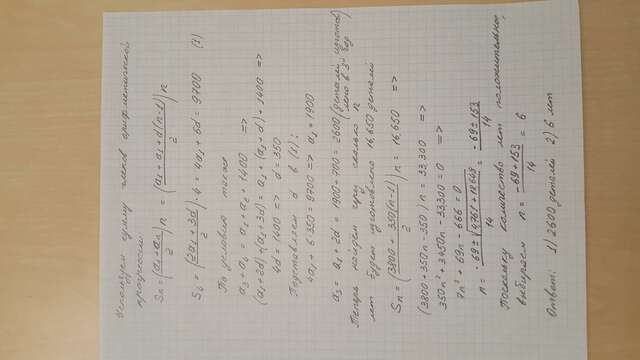 Используем сумму членов арифметической
прогрессии
Sn = ((a₁ + an)/2) n = ((a₁ + a₁ + d(n-1))/2) n
S₆ = ((2a₁ + 3d)/2) · 4 = 4a₁ + 6d = 9700 (1)
По условию также
a₃ + a₄ = a₁ + a₂ + 1400 =>
(a₁+2d) + (a₁+3d) = a₁ + (a₁+d) + 1400 =>
4d = 1400 => d = 350
Подставляем d в (1):
4a₁ + 6·350 = 9700 => a₁ = 1900
a₃ = a₁ + 2d = 1900 + 700 = 2600 (деталей изготов
лено в 3й
Теперь найдем через сколько n
лет будет изготовлено 16,650 деталей
Sn = ((3800 + 350(n-1))/2) n = 16,650 =>
(3800 + 350n - 350) n = 33,300 =>
350n² + 3450n - 33300 = 0 =>
7n² + 69n - 666 = 0
n = (-69 ± √(4761 + 18648))/14 = (-69 ± 153)/14
Поскольку количество лет положительно,
выбираем n = (-69 + 153)/14 = 6
Ответ: 1) 2600 деталей 2) 6 лет